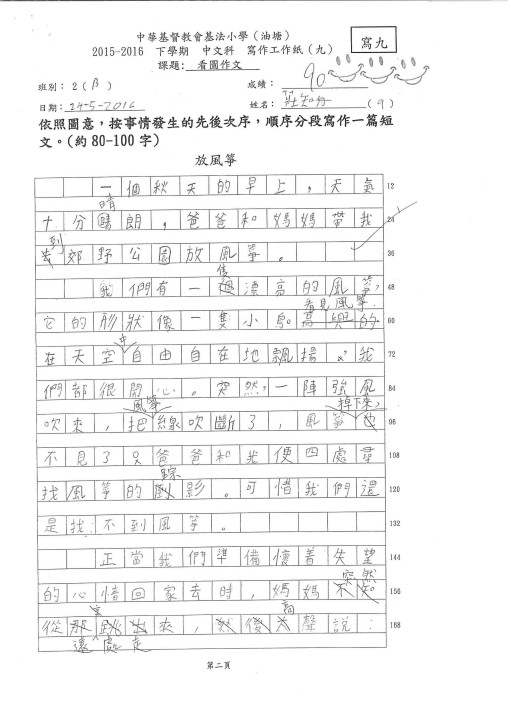 中華基督教會基法小學（油塘）
2015-2016 下學期 中文科 寫作工作紙（九）
寫九
課題: 看圖作文
班別: 2(B)
成績: 90
日期: 24-5-2016
姓名: 知行 (9)
依照圖意，按事情發生的先後次序，順序分段寫作一篇短
文。(約 80-100 字)
放風箏
一個秋天的早上，天氣 12
晴
十分朗，爸爸和媽媽帶我 24
到
去郊野公園放風箏。 36
隻
我們有一漂高的風箏， 48
看見風箏
它的形狀像一隻小鳥。高興的 60
中
在天空自由自在地飄揚，我 72
們都很開心。突然，一陣強風 84
風箏 掉下來，
吹來，把線吹斷了，風箏也 96
不見了。爸爸和我便四處尋 108
踪
找風箏的影。可惜我們還 120
是找不到風箏。 132
正當我們準備懷着失望 144
突然
的心情回家去時，媽媽不知 156
高
從那跳出來，然後大聲說： 168
遠處走
第二頁